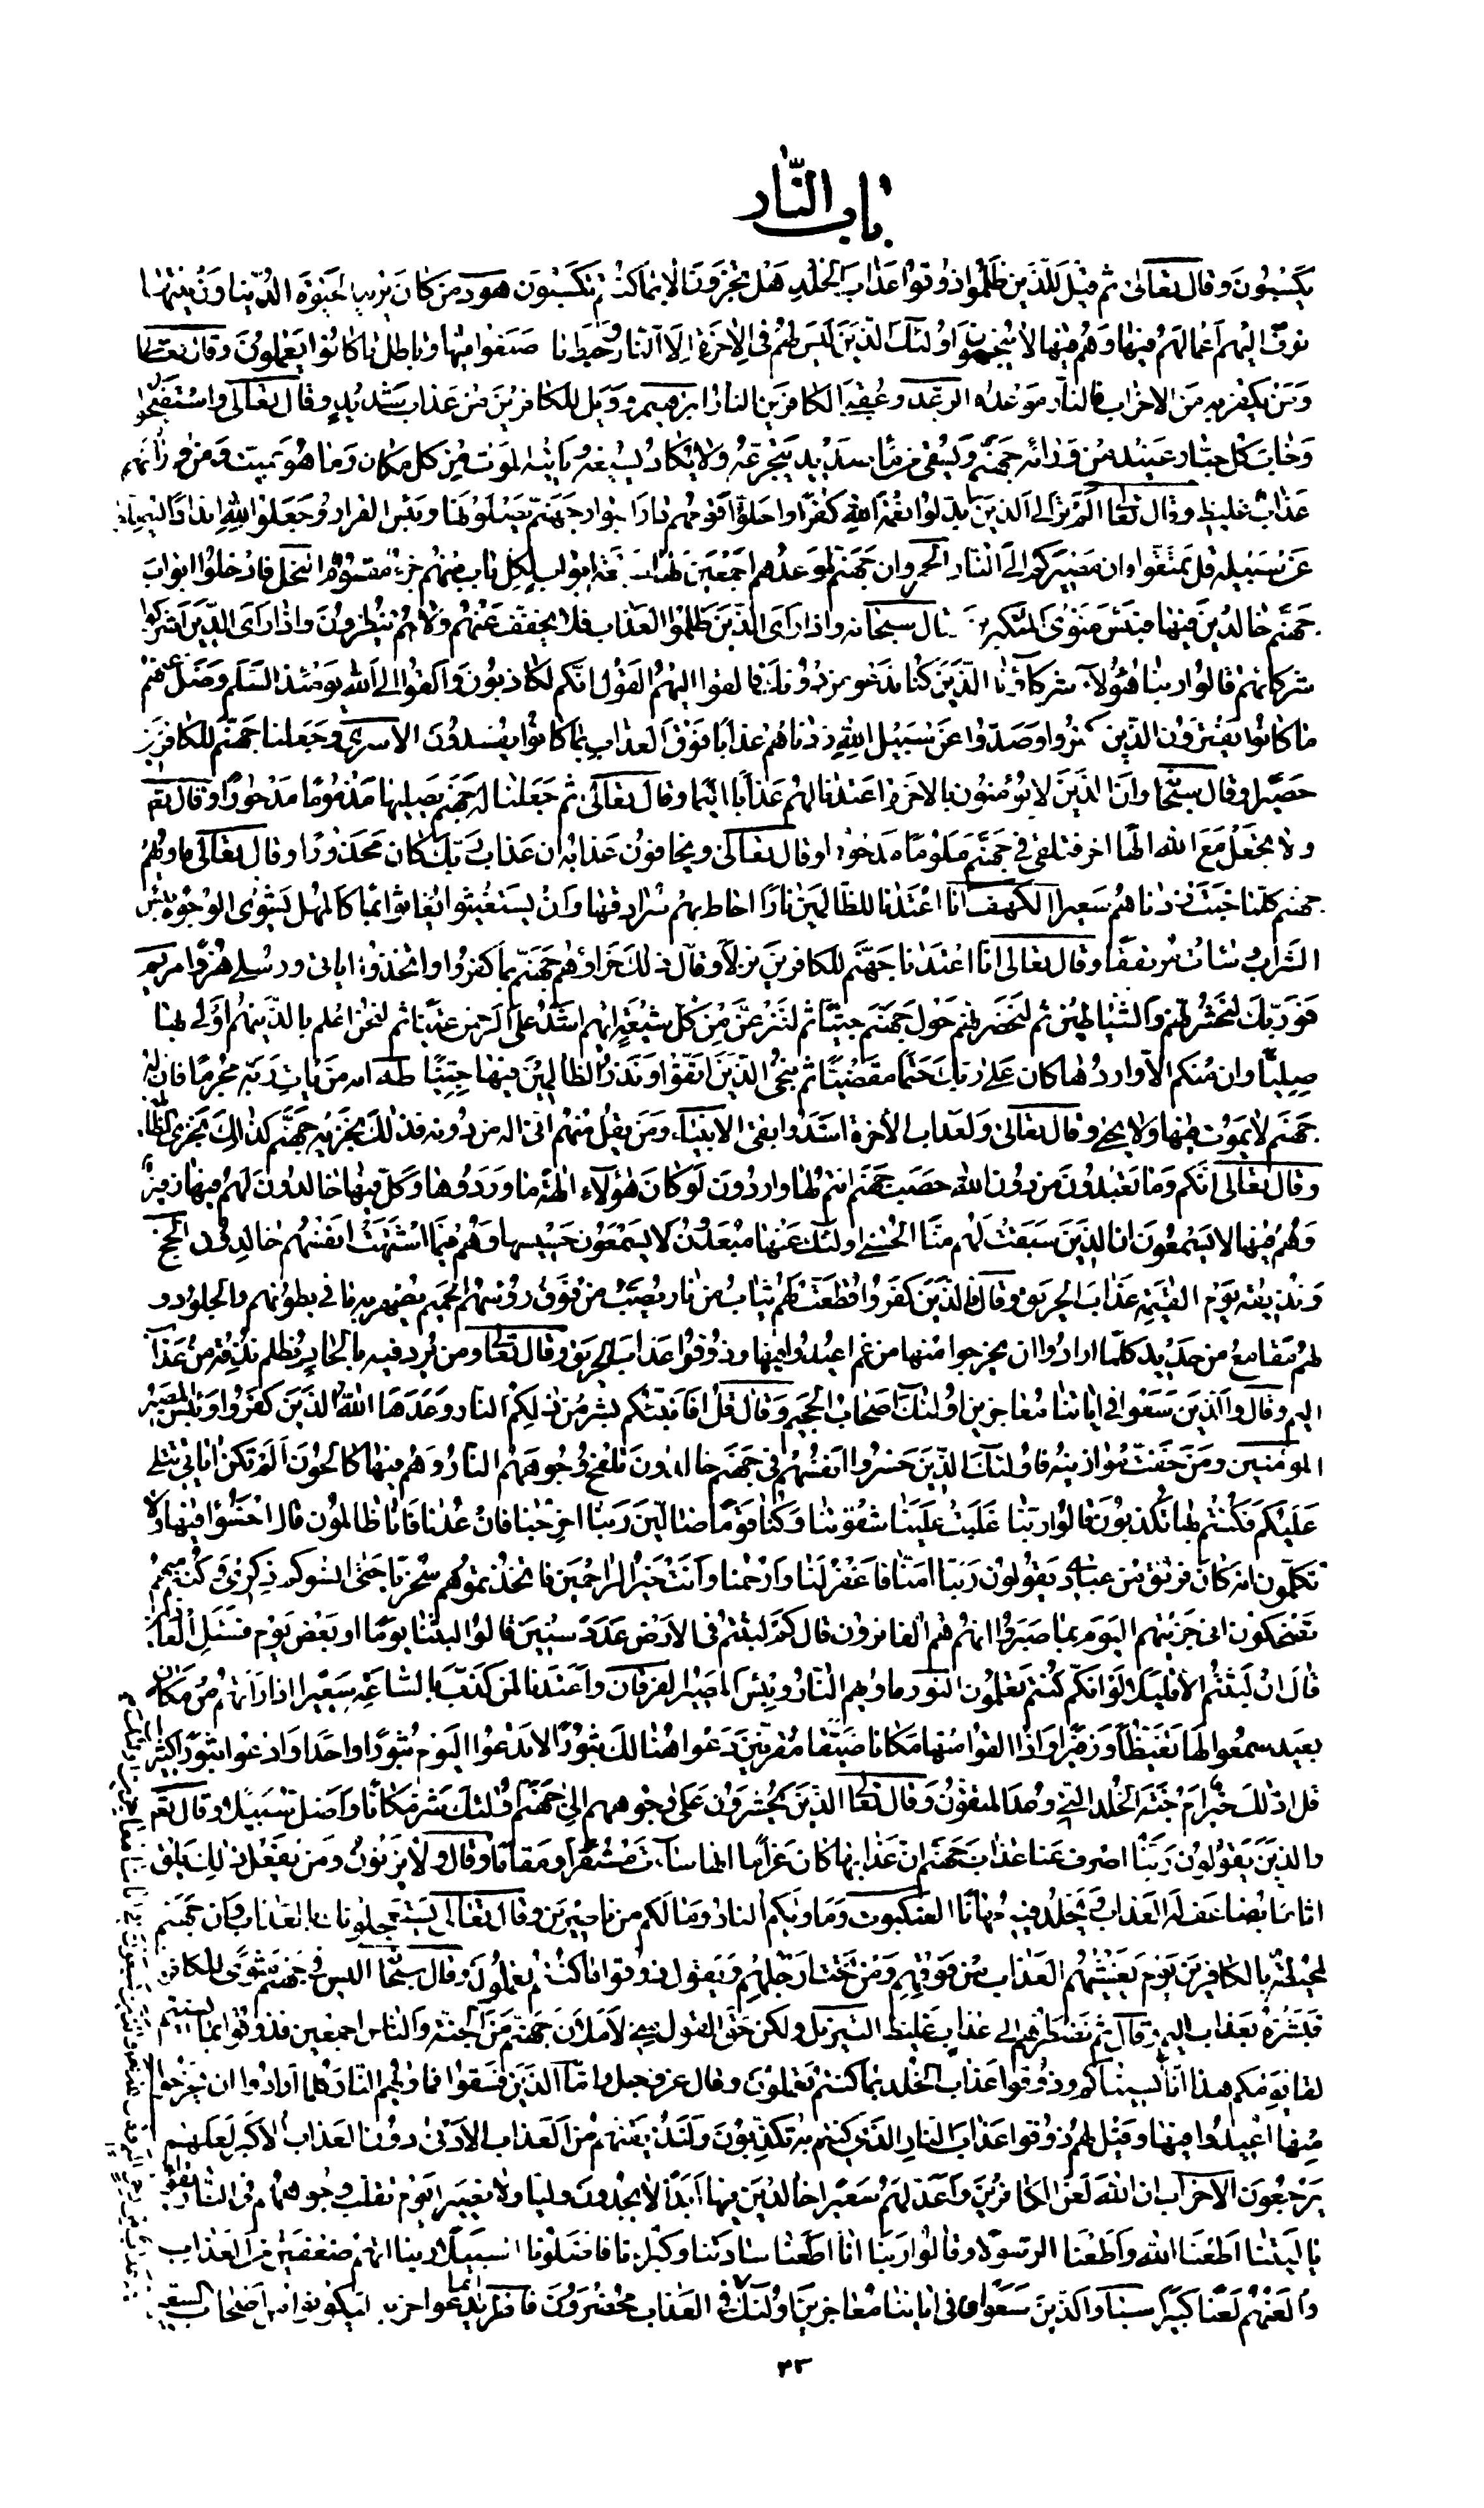 باب النار
يكسبون وقال تعالى ثم قيل للذين ظلموا ذوقوا عذاب الخلد هل تجزون الا بما كنتم تكسبون هود من كان يريد الحيوة الدنيا وزينتها
نوف اليهم اعمالهم فيها وهم فيها لا يبخسون اولئك الذين ليس لهم في الاخرة الا النار وحبط ما صنعوا فيها وباطل ما كانوا يعملون وقال تعالى
ومن يكفر به من الاحزاب فالنار موعده الرعد وعقبى الكافرين النار ابرهيم وويل للكافرين من عذاب شديد وقال تعالى واستفتحوا
وخاب كل جبار عنيد من ورائه جهنم ويسقى من ماء صديد يتجرعه ولا يكاد يسيغه ويأتيه الموت من كل مكان وما هو بميت ومن ورائه
عذاب غليظ وقال تعا الم تر الى الذين بدلوا نعمة الله كفرا واحلوا قومهم دار البوار جهنم يصلونها وبئس القرار وجعلوا لله اندادا ليضلوا
عن سبيله قل تمتعوا فان مصيركم الى النار الحجر وان جهنم لموعدهم اجمعين لها سبعة ابواب لكل باب منهم جزء مقسوم النحل فادخلوا ابواب
جهنم خالدين فيها فبئس مثوى المتكبرين قال سبحانه واذا راى الذين ظلموا العذاب فلا يخفف عنهم ولا هم ينظرون واذا راى الذين اشركوا
شركائهم قالوا ربنا هؤلاء شركاؤنا الذين كنا ندعو من دونك فالقوا اليهم القول انكم لكاذبون والقوا الى الله يومئذ السلم وضل عنهم
ما كانوا يفترون الذين كفروا وصدوا عن سبيل الله زدناهم عذابا فوق العذاب بما كانوا يفسدون الاسرى وجعلنا جهنم للكافرين
حصيرا وقال سبحا وان الذين لا يؤمنون بالاخرة اعتدنا لهم عذابا اليما وقال تعالى ثم جعلنا له جهنم يصليها مذموما مدحورا وقال تع
ولا تجعل مع الله الها اخر فتلقى في جهنم ملوما مدحورا وقال تعالى ويخافون عذابه ان عذاب ربك كان محذورا وقال تعالى ماويهم
جهنم كلما خبت زدناهم سعيرا الكهف انا اعتدنا للظالمين نارا احاط بهم سرادقها وان يستغيثوا يغاثوا بماء كالمهل يشوى الوجوه بئس
الشراب وساءت مرتفقا وقال تعالى انا اعتدنا جهنم للكافرين نزلا وقال ذلك جزاؤهم جهنم بما كفروا واتخذوا اياتى ورسلي هزوا مريم
فوربك لنحشرنهم والشياطين ثم لنحضرنهم حول جهنم جثيا ثم لننزعن من كل شيعة ايهم اشد على الرحمن عتيا ثم لنحن اعلم بالذين هم اولى بها
صليا وان منكم الا واردها كان على ربك حتما مقضيا ثم ننجي الذين اتقوا ونذر الظالمين فيها جثيا طه انه من يات ربه مجرما فان له
جهنم لا يموت فيها ولا يحيى وقال تعالى ولعذاب الاخرة اشد وابقى الانبياء ومن يقل منهم انى اله من دونه فذلك نجزيه جهنم كذلك نجزي الظا
وقال تعالى انكم وما تعبدون من دون الله حصب جهنم انتم لها واردون لو كان هؤلاء الهة ما وردوها وكل فيها خالدون لهم فيها زفير
وهم فيها لا يسمعون ان الذين سبقت لهم منا الحسنى اولئك عنها مبعدون لا يسمعون حسيسها وهم فيما اشتهت انفسهم خالدون الحج
ونذيقه يوم القيمة عذاب الحريق وقال فالذين كفروا قطعت لهم ثياب من نار يصب من فوق رؤسهم الحميم يصهر به ما في بطونهم والجلود و
لهم مقامع من حديد كلما ارادوا ان يخرجوا منها من غم اعيدوا فيها وذوقوا عذاب الحريق وقال تعا ومن يرد فيه بالحاد بظلم نذقه من عذاب
اليم وقال والذين سعوا في اياتنا معاجزين اولئك اصحاب الجحيم وقال قل افانبئكم بشر من ذلكم النار وعدها الله الذين كفروا وبئس المصير
المومنين ومن خفت موازينه فاولئك الذين خسروا انفسهم في جهنم خالدون تلفح وجوههم النار وهم فيها كالحون الم تكن اياتي تتلى
عليكم فكنتم بها تكذبون قالوا ربنا غلبت علينا شقوتنا وكنا قوما ضالين ربنا اخرجنا منها فان عدنا فانا ظالمون قال اخسئوا فيها ولا
تكلمون انه كان فريق من عبادي يقولون ربنا امنا فاغفر لنا وارحمنا وانت خير الراحمين فاتخذتموهم سخريا حتى انسوكم ذكرى وكنتم منهم
تضحكون انى جزيتهم اليوم بما صبروا انهم هم الفائزون قال كم لبثتم فى الارض عدد سنين قالوا لبثنا يوما او بعض يوم فسئل العادين
قال ان لبثتم الا قليلا لو انكم كنتم تعلمون النور ماويهم النار وبئس المصير الفرقان واعتدنا لمن كذب بالساعة سعيرا اذا راتهم من مكان
بعيد سمعوا لها تغيظا وزفيرا واذا القوا منها مكانا ضيقا مقرنين دعوا هنالك ثبورا لا تدعوا اليوم ثبورا واحدا وادعوا ثبورا كثيرا
قل اذلك خير ام جنة الخلد التي وعد المتقون وقال تعا الذين يحشرون على وجوههم الى جهنم اولئك شر مكانا واضل سبيلا وقال تع
والذين يقولون ربنا اصرف عنا عذاب جهنم ان عذابها كان غراما انها ساءت مستقرا ومقاما وقال ولا يزنون ومن يفعل ذلك يلق
اثاما يضاعف له العذاب ويخلد فيه مهانا العنكبوت وماويكم النار وما لكم من ناصرين وقال تعالى يستعجلونك بالعذاب وان جهنم
لمحيطة بالكافرين يوم يغشيهم العذاب من فوقهم ومن تحت ارجلهم ويقول ذوقوا ما كنتم تعملون وقال سبحا اليس في جهنم مثوى للكافرين
فبشره بعذاب اليم وقال ثم نضطرهم الى عذاب غليظ التنزيل ولكن حق القول مني لاملان جهنم من الجنة والناس اجمعين فذوقوا بما نسيتم
لقاء يومكم هذا انا نسيناكم وذوقوا عذاب الخلد بما كنتم تعملون وقال عز وجل واما الذين فسقوا فماويهم النار كلما ارادوا ان يخرجوا
منها اعيدوا فيها وقيل لهم ذوقوا عذاب النار الذي كنتم به تكذبون ولنذيقنهم من العذاب الادنى دون العذاب الاكبر لعلهم
يرجعون الاحزاب ان الله لعن الكافرين واعد لهم سعيرا خالدين فيها ابدا لا يجدون وليا ولا نصيرا يوم تقلب وجوههم فى النار يقولون
يا ليتنا اطعنا الله واطعنا الرسولا وقالوا ربنا انا اطعنا سادتنا وكبراءنا فاضلونا السبيلا ربنا اتهم ضعفين من العذاب
والعنهم لعنا كبيرا سبا والذين سعوا فى اياتنا معاجزين اولئك في العذاب محضرون فاطر انما يدعوا حزبه ليكونوا من اصحاب السعير
٣٣